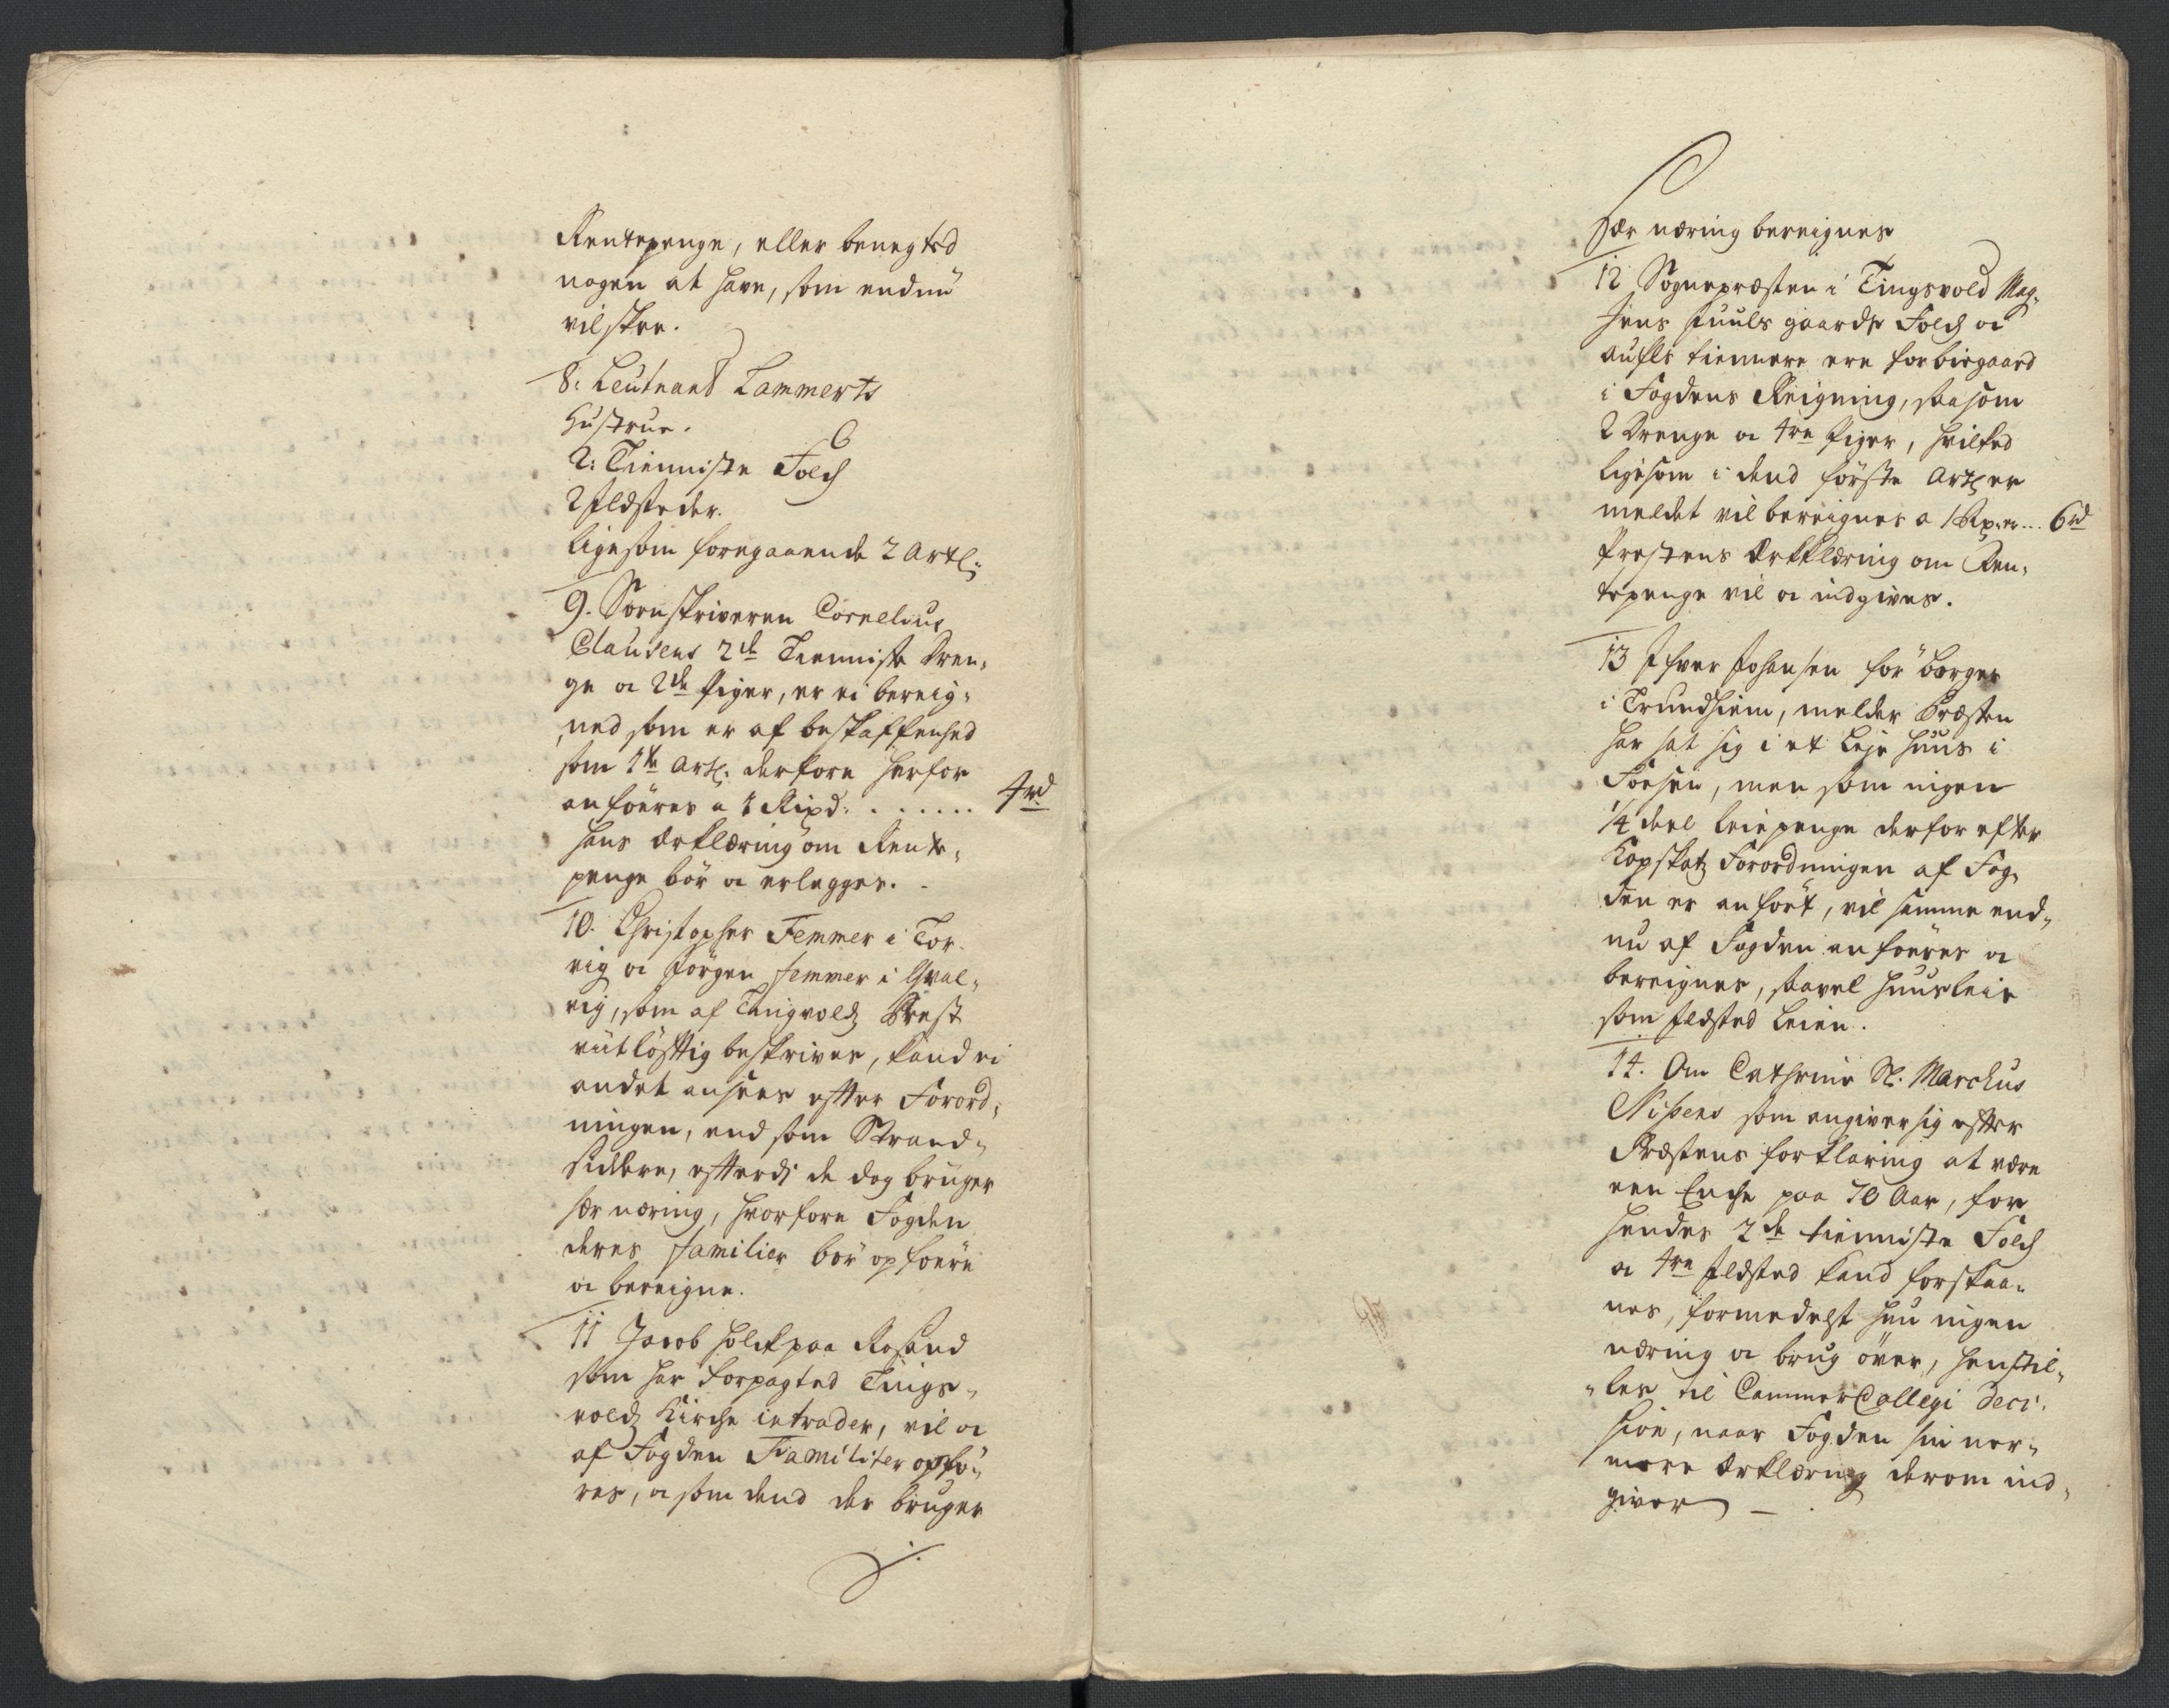 Rentepenge, eller benegted
nogen at have, som endnu
vil skee.
8: Leutnand Lammerts
Hustrue.
2: Tienniste Folch
2 Ildsteder.
ligesom foregaaende 2 Artl:
9. Sorenskriveren Cornelius
Clausens 2de Tienniste Dren¬
ge oc 2de Piger, er ei bereig¬
ned som er af beskaffenhed
som 1te Artl: derfore herfor
anföeres a 1 Rixd: . . . . . . 4rd
hans Erklæring om Rente¬
penge bör oc erlegges.
10. Christopher Femmer i Tor¬
vig oc Jörgen Femmer i Qval¬
vig, som af Tingvolds Prest
vitlöftig beskrives, kand ei
andet ansees efter Forord¬
ningen, end som Strand¬
siddere, efterdj de dog bruger
sær næring, hvorfore Fogden
deres familier bör opföere
oc bereigne.
11 Jacob Holck paa Rosand
som har Forpagted Tings¬
volds Kirche intrader, vil oc
af Fogden Familiter opfö¬
res, oc som dend der bruger
./.
Sær næring bereignes
12 Sognepræsten i Tingsvold Mag.
Jens Juuls gaards Folch oc
aufls tiennere ere forbiegaard
i Fogdens Reigning, saasom
2 Drenge oc 4re Piger, hvilked
ligesom i dend förste Artl er
meldet vil bereignes a 1 Rixdr... 6rd
Prestens Erklæring om Ren¬
tepenge vil oc indgives.
13 Ifver Johansen för borger
i Trundhiem, melder Præsten
har sat sig i et Leje huus i
Foesen, men som ingen
1/4 deel leiepenge derfor efter
Kopskatz Forordningen af Fog¬
den er anfört, vil samme end¬
nu af Fogden anföeres oc
bereignes, saavel huusleie
som Ildsted Leien.
14. Om Cathrine Sl. Marchus
Nissens som angiver sig efter
Præstens forklaring at være
een Enche paa 70 Aar, for
hendes 2de tienniste Folch
oc 4re Ildsted kand forskaa¬
nes, formedelst hun ingen
næring oc brug över, henstil¬
les til CammerCollegi deci¬
sion, naar Fogden sin ner¬
mere Erklæring derom ind¬
giver